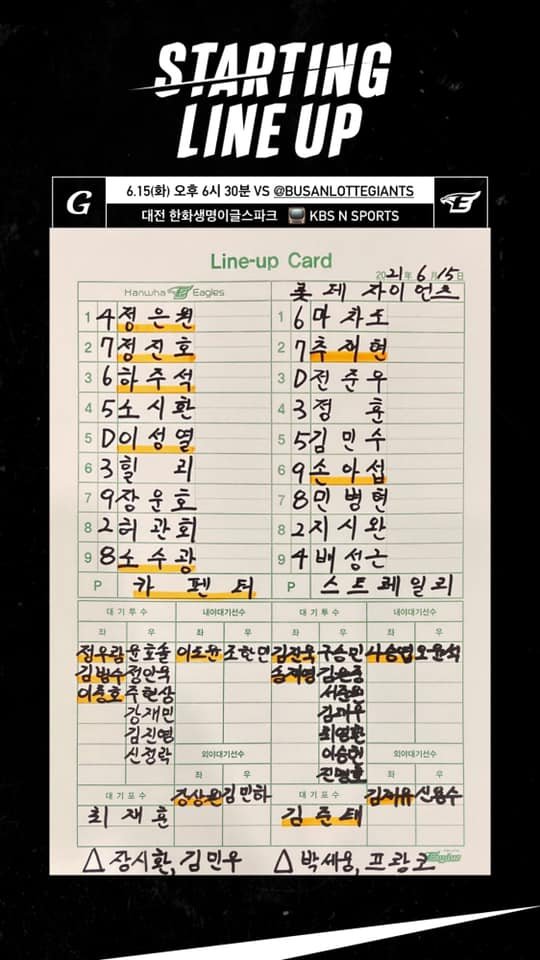 STARTING
LINE UP
G
6.15(화) 오후 6시 30분 VS @BUSANLOTTEGIANTS
대전 한화생명이글스파크 KBS N SPORTS
E
Line-up Card
2021年 6月 15日
Hanwha Eagles 롯데 자이언츠
1 4 정은원 1 6 마차도
2 7 정진호 2 7 추재현
3 6 하주석 3 D 전준우
4 5 노시환 4 3 정훈
5 D 이성열 5 5 김민수
6 3 힐리 6 9 손아섭
7 9 장운호 7 8 민병헌
8 2 허관회 8 2 지시완
9 8 노수광 9 4 배성근
P 카펜터 P 스트레일리
대기투수 내야대기선수 대기투수 내야대기선수
좌 우 좌 우 좌 우 좌 우
정우람 윤호솔 이도윤 조한민 김진욱 구승민 나승엽 오윤석
김범수 송재영 김원중
이충호 주현상 서준원
강재민
김진영 최영환
신정락 외야대기선수 외야대기선수
좌 우 좌 우
대기포수 장상원 김민하 대기포수 신용수
최재훈 김준태
Eagles
△ 장시환, 김민우 △ 박세웅, 프랑코